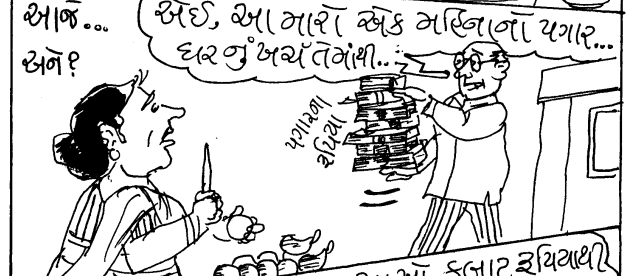 આજે...
અને?
એઈ, આ મારો એક મહિનાનો પગાર...
ઘરનું ખર્ચ તેમાંથી..
પગારના
રૂપિયા
કબાટ રૂપિયાથી